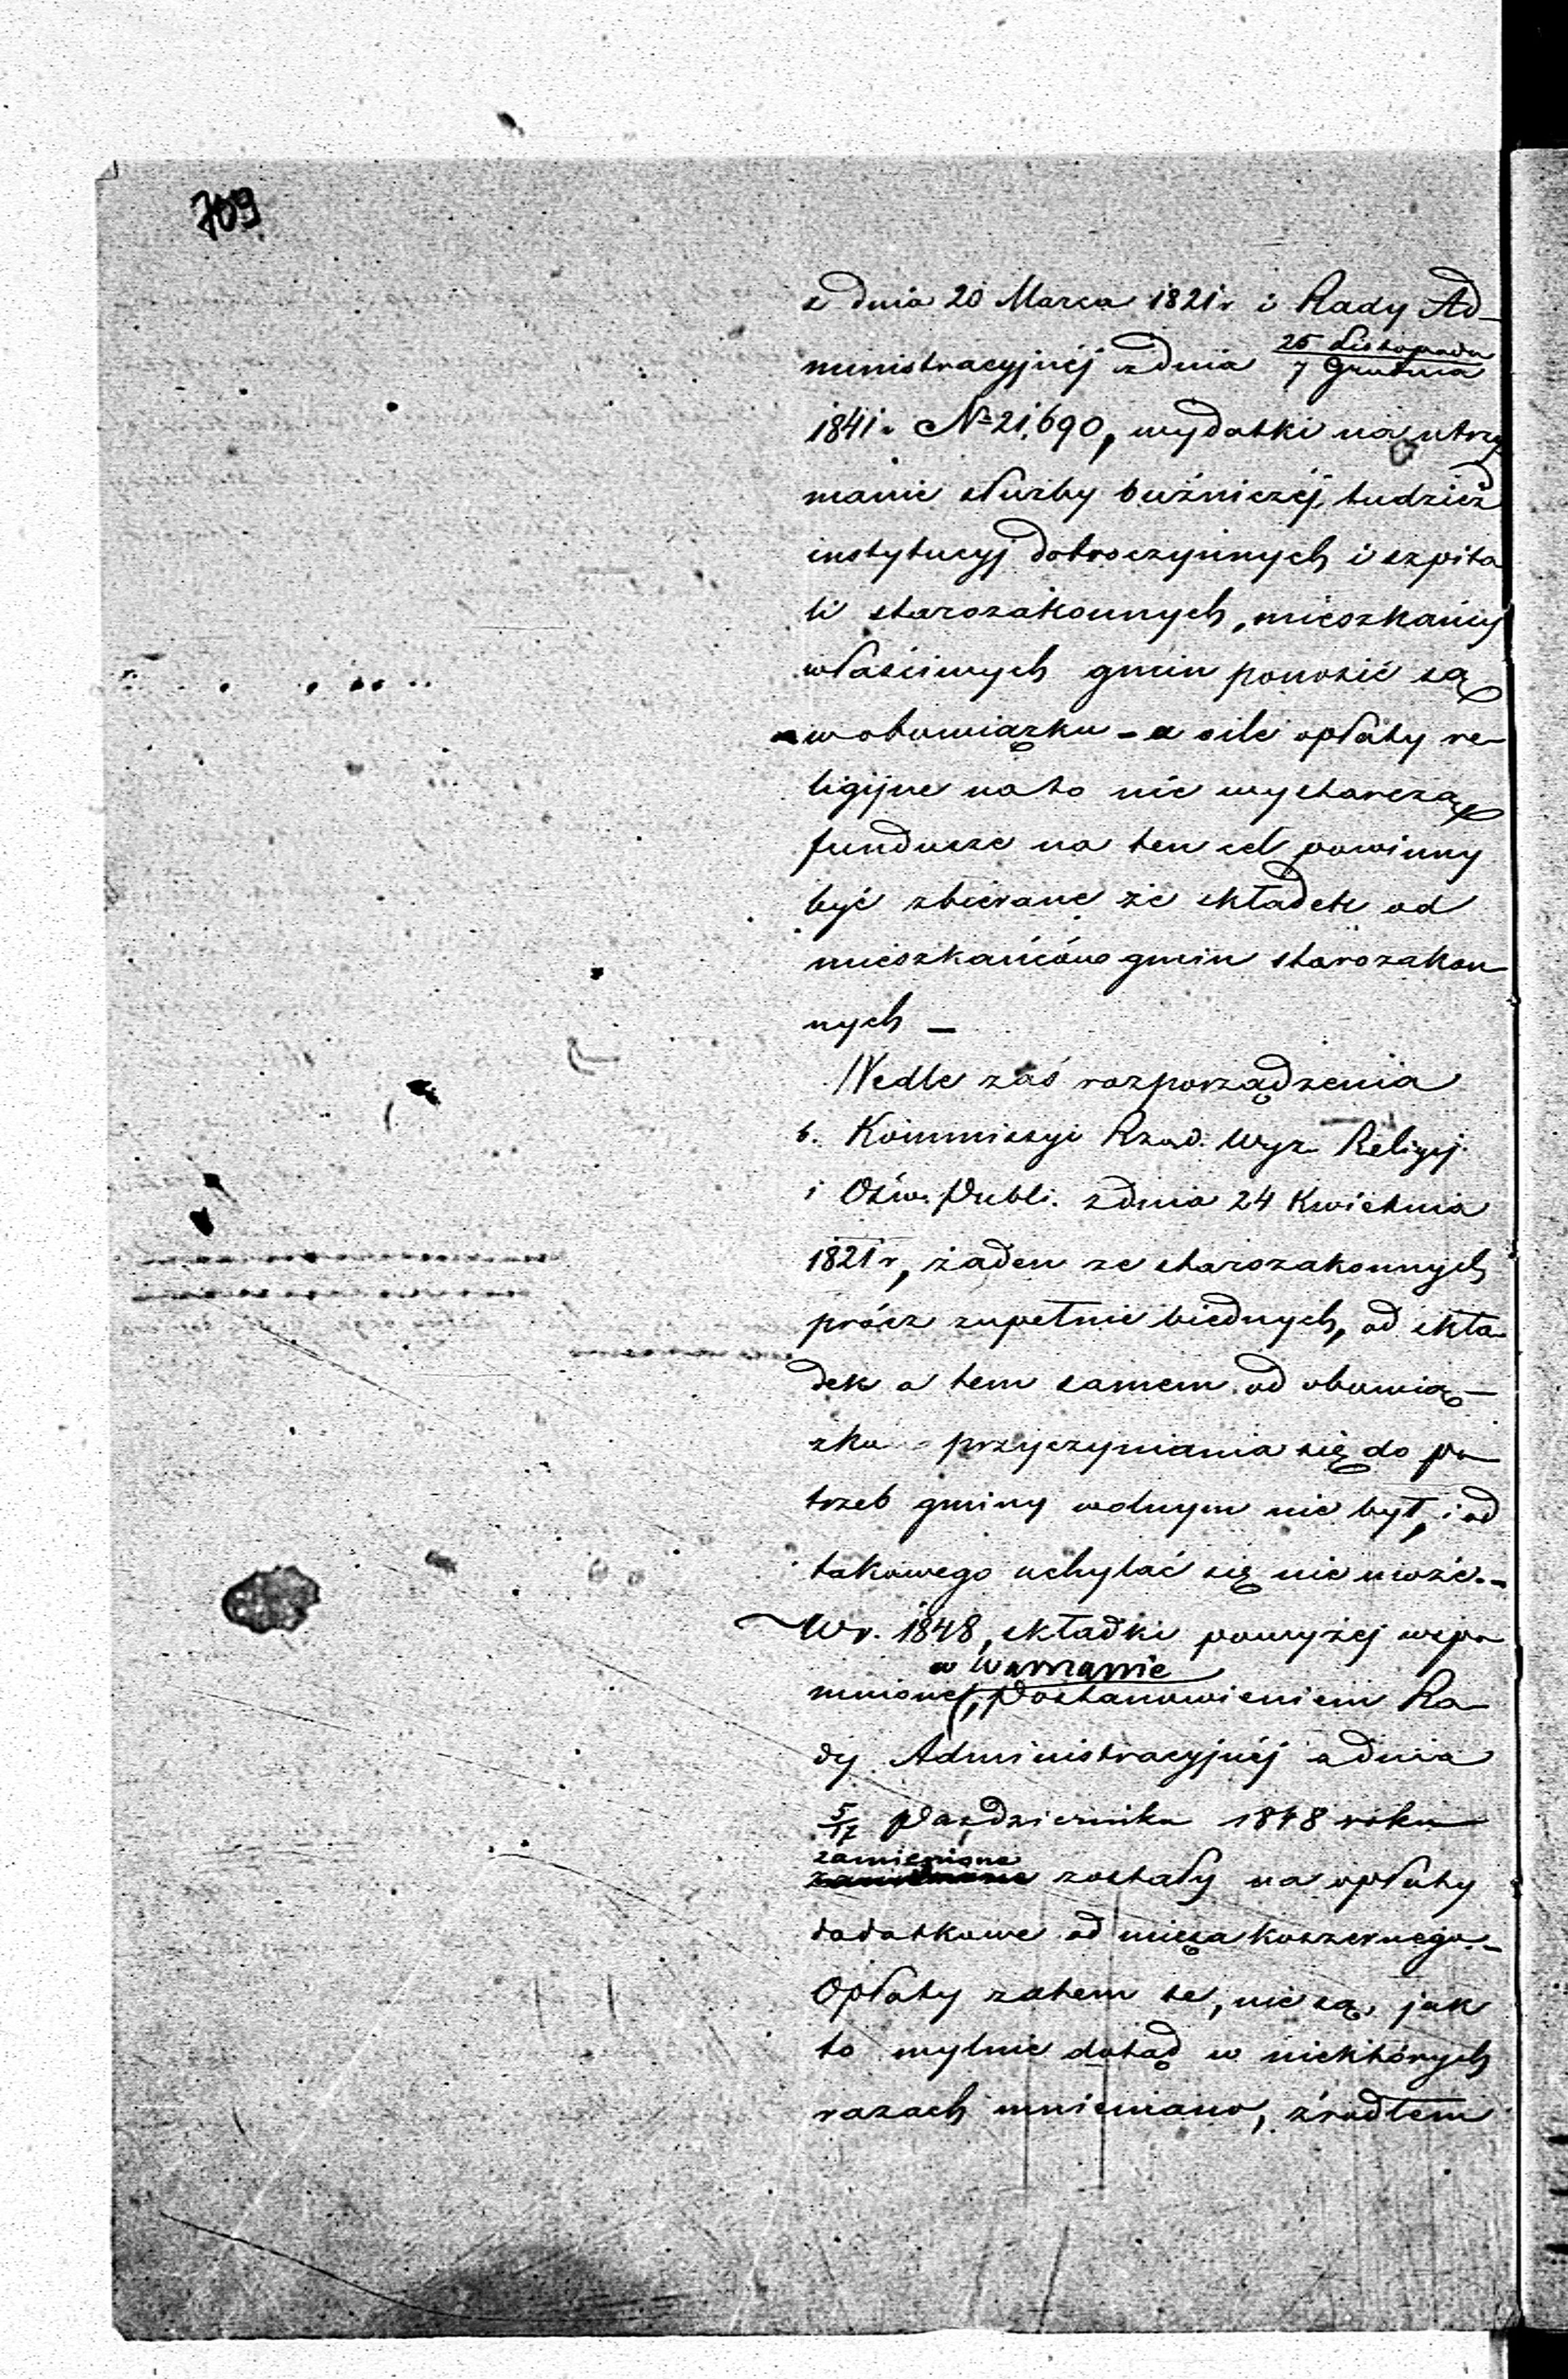 709
z dnia 20 Marca 1821 r i Rady Ad-
ministracyjnéj z dnia 25 Listopada / 7 Grudnia
1841. № 21,690, wydatki na utrzy
manie służby bużniczéj, tudzież
instytucyj dobroczynnych i szpita
li starozakonnych, mieszkańcy
właściwych gmin ponosić są
w obowiązku – a ile opłaty re-
ligijne na to nie wystarczą
fundusze na ten cel powinny
być zbierane ze składek od
mieszkańców gmin starozakon
nych –
Wedle zaś rozporządzenia
b. Kommissyi Rząd. Wyz. Religij.
i Ośw. Publi. z dnia 24 Kwietnia
1821 r, żaden ze starozakonnych
prócz zupełnie biednych, od skła
dek a tem samem od obowią-
zku przyczyniania się do po-
trzeb gminy wolnym nie był, i od
takowego uchylać się nie może. –
W r. 1848, składki powyżej wspo
w Warszawie
mnione, Postanowieniem Ra-
dy Administracyjnéj z dnia
5/17 Października 1848 roku
zamienione
zostały na opłaty
dodatkowe od mięsa koszernego. –
Opłaty zatem te, nie są, jak
to mylnie dotąd w niektórych
razach mniemano, źrodłem